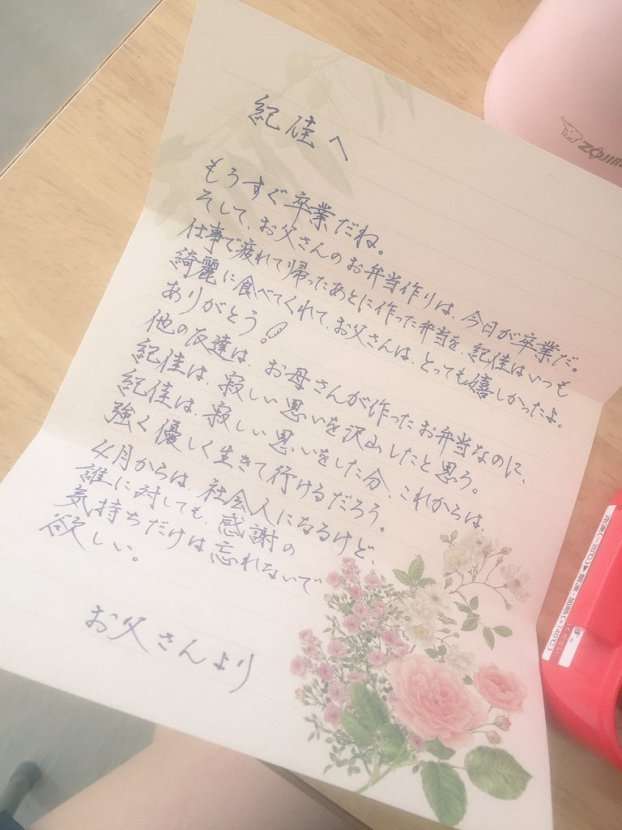 紀佳へ
もうすぐ卒業だね。
そして、お父さんのお弁当作りは、今日が卒業だ。
仕事で疲れて帰ったあとに作った弁当を、紀佳はいつも
綺麗に食べてくれて、お父さんは、とっても嬉しかったよ。
ありがとう!
他の友達は、お母さんが作ったお弁当なのに、
紀佳は、寂しい思いを沢山したと思う。
紀佳は、寂しい思いをした分、これからは、
強く優しく生きて行けるだろう。
4月からは、社会人になるけど、
誰に対しても、感謝の
気持ちだけは忘れないで
欲しい。
お父さんより